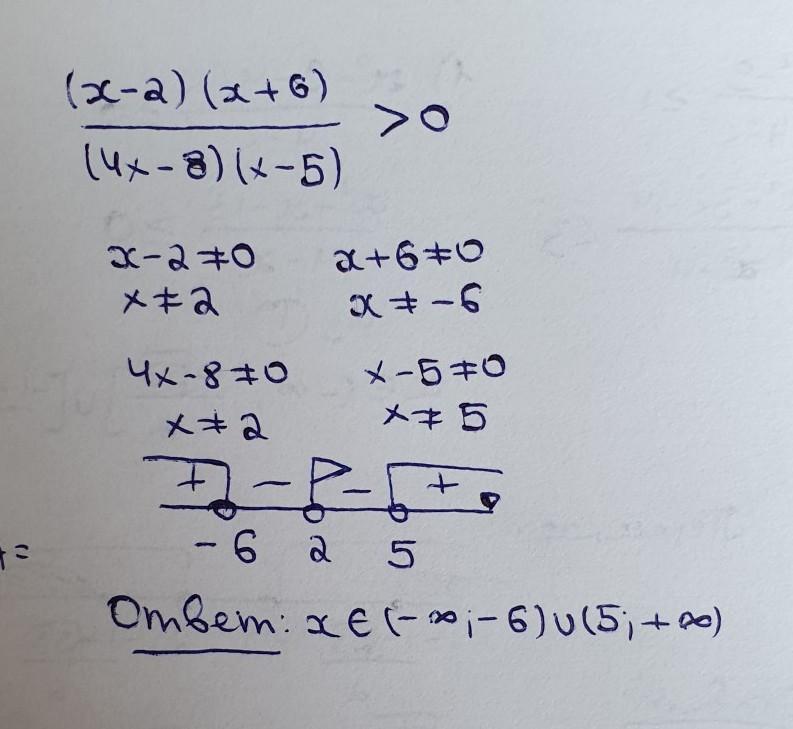 (x-2)(x+6)
(4x-8)(x-5)
>0
x-2≠0 x+6≠0
x≠2 x≠-6
4x-8≠0 x-5≠0
x≠2 x≠5
+ - - +
-6 2 5
Ответ: x∈(-∞;-6)∪(5;+∞)